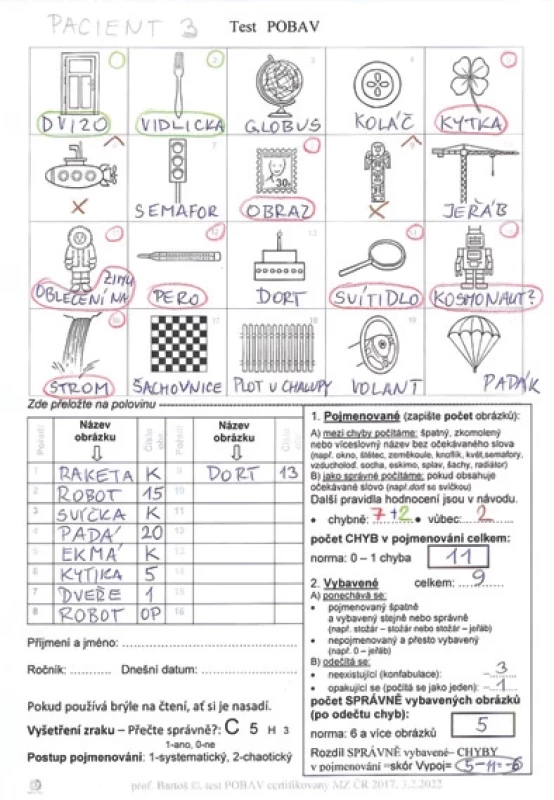 PACIENT 3 Test POBAV
1 2 3 4 5
DVIZO VIDLICKA GLOBUS KOLÁČ KYTKA
7
30
X SEMAFOR OBRAZ X JEŘÁB
12 13
OBLEČENÍ NA ZIMU PERO DORT SVÍTIDLO KOSMONAUT?
17 18 19
STROM ŠACHOVNICE PLOT U CHALUPY VOLANT PADÁK
Zde přeložte na polovinu
Pořadí Název obrázku Číslo obr. Pořadí Název obrázku Číslo obr.
1 RAKETA K 9 DORT 13
2 ROBOT 15 10
3 SVÍČKA K 11
4 PADÁ 20 12
5 EKMÁ K 13
6 KYTIKA 5 14
7 DVEŘE 1 15
8 ROBOT OP 16
Příjmení a jméno:
Ročník: Dnešní datum:
Pokud používá brýle na čtení, ať si je nasadí.
Vyšetření zraku – Přečte správně?: C 5 H 3
1-ano, 0-ne
Postup pojmenování: 1-systematický, 2-chaotický
1. Pojmenované (zapište počet obrázků):
A) mezi chyby počítáme: špatný, zkomolený
nebo víceslovný název bez očekávaného slova
(např. okno, štětec, zeměkoule, knoflík, květ,semafory,
vzducholoď, socha, eskimo, splav, šachy, radiátor)
B) jako správné počítáme: pokud obsahuje
očekávané slovo (např.dort se svíčkou)
Další pravidla hodnocení jsou v návodu.
• chybně: 7+2 • vůbec: 2
počet CHYB v pojmenování celkem:
norma: 0 – 1 chyba 11
2. Vybavené celkem: 9
A) ponechává se:
• pojmenovaný špatně
a vybavený stejně nebo správně
(např. stožár – stožár nebo stožár – jeřáb)
• nepojmenovaný a přesto vybavený
(např. 0 – jeřáb)
B) odečítá se:
• neexistující (konfabulace): – 3
• opakující se (počítá se jako jeden): – 1
počet SPRÁVNĚ vybavených obrázků
(po odečtu chyb):
norma: 6 a více obrázků 5
Rozdíl SPRÁVNĚ vybavené– CHYBY
v pojmenování =skór Vypoj= 5-11=-6
prof. Bartoš ©, test POBAV certifikovaný MZ ČR 2017, 3.2.2022